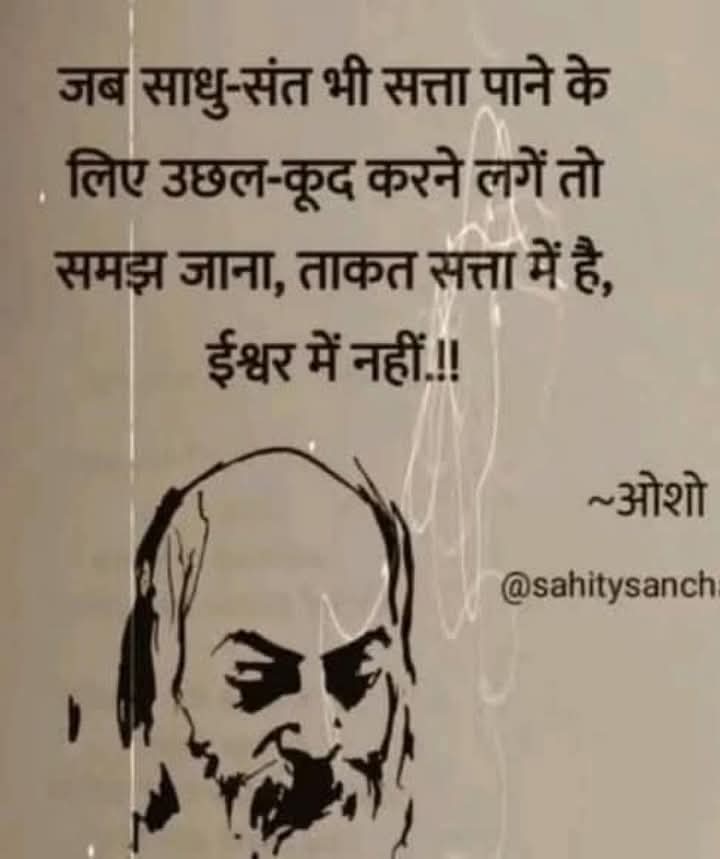 जब साधु-संत भी सत्ता पाने के
लिए उछल-कूद करने लगें तो
समझ जाना, ताकत सत्ता में है,
ईश्वर में नहीं.!!
~ओशो
@sahitysanch